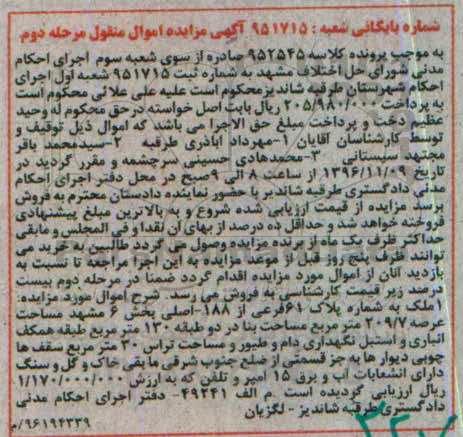 شماره بایگانی شعبه : ۹۵۱۷۱۵ آگهی مزایده اموال منقول مرحله دوم
به موجب پرونده کلاسه ۹۵۲۵۴۵ صادره از سوی شعبه سوم اجرای احکام
مدنی شورای حل اختلاف مشهد به شماره ثبت ۹۵۱۷۱۵ شعبه اول اجرای
احکام شهرستان طرقبه شاندیز محکوم است علیه علی علائی محکوم است
به پرداخت ۲۰۵/۹۸۰/۰۰۰ ریال بابت اصل خواسته در حق محکوم له وحید
عظیم دخت و پرداخت مبلغ حق الاجرا می باشد که اموال ذیل توقیف و
توسط کارشناسان آقایان ۱-مهرداد اباذری طرقبه ۲-سیدمحمد باقر
مجتهد سیستانی ۳-محمدهادی حسینی سرچشمه و مقرر گردید در
تاریخ ۱۳۹۶/۱۱/۰۹ از ساعت ۸ الی ۹ صبح در محل دفتر اجرای احکام
مدنی دادگستری طرقبه شاندیز با حضور نماینده دادستان محترم به فروش
برسد مزایده از قیمت ارزیابی شده شروع و به بالاترین مبلغ پیشنهادی
فروخته خواهد شد و حداقل ده درصد از بهای آن نقدا و فی المجلس و مابقی
حداکثر ظرف یک ماه از برنده مزایده وصول می گردد طالبین به خرید می
توانند ظرف پنج روز قبل از موعد مزایده به این اجرا مراجعه تا نسبت به
بازدید آنان از اموال مورد مزایده اقدام گردد ضمنا در مرحله دوم بیست
درصد زیر قیمت کارشناسی به فروش می رسد. شرح اموال مورد مزایده:
۱ملک به شماره پلاک ۶۹فرعی از ۱۸۸-اصلی بخش ۶ مشهد مساحت
عرصه ۲۰۹/۷ متر مربع مساحت بنا در دو طبقه ۱۳۰ متر مربع طبقه همکف
انباری و استبل نگهداری دام و طیور و مساحت تراس ۳۰ متر مربع سقف ها
چوبی دیوار ها به جز قسمتی از ضلع جنوب شرقی ما بقی خاک و گل و سنگ
دارای انشعابات آب و برق ۱۵ آمپر و تلفن که به ارزش ۱/۱۷۰/۰۰۰/۰۰۰
ریال ارزیابی گردیده است .م الف ۴۹۲۴۱- دفتر اجرای احکام مدنی
دادگستری طرقبه شاندیز - لگزیان
۹۶۱۹۲۳۳۹/م